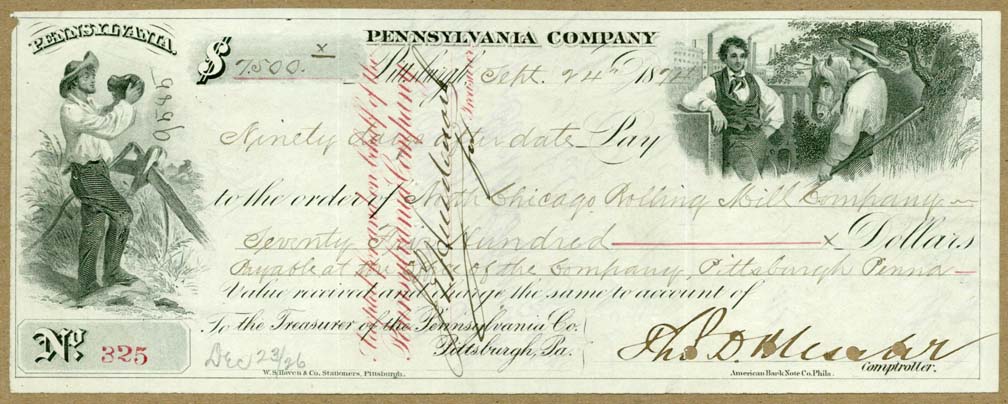 PENNSYLVANIA.
$ 7.500. x
PENNSYLVANIA COMPANY
Pittsburgh, Sept. 24th 187
9826
Ninety days after date Pay
to the order of North Chicago Rolling Mill Company
Seventy Five Hundred x Dollars
Payable at the office of the Company, Pittsburgh Penna
Value received and charge the same to account of
To the Treasurer of the Pennsylvania Co.
Pittsburgh, Pa.
Thos D. Messler
Comptroller.
No. 325
Dec 23/26
W. S. Haven & Co. Stationers, Pittsburgh.
American Bank Note Co. Phila.
Accepted payable on of the
Pennsylvania Company
Treasurer